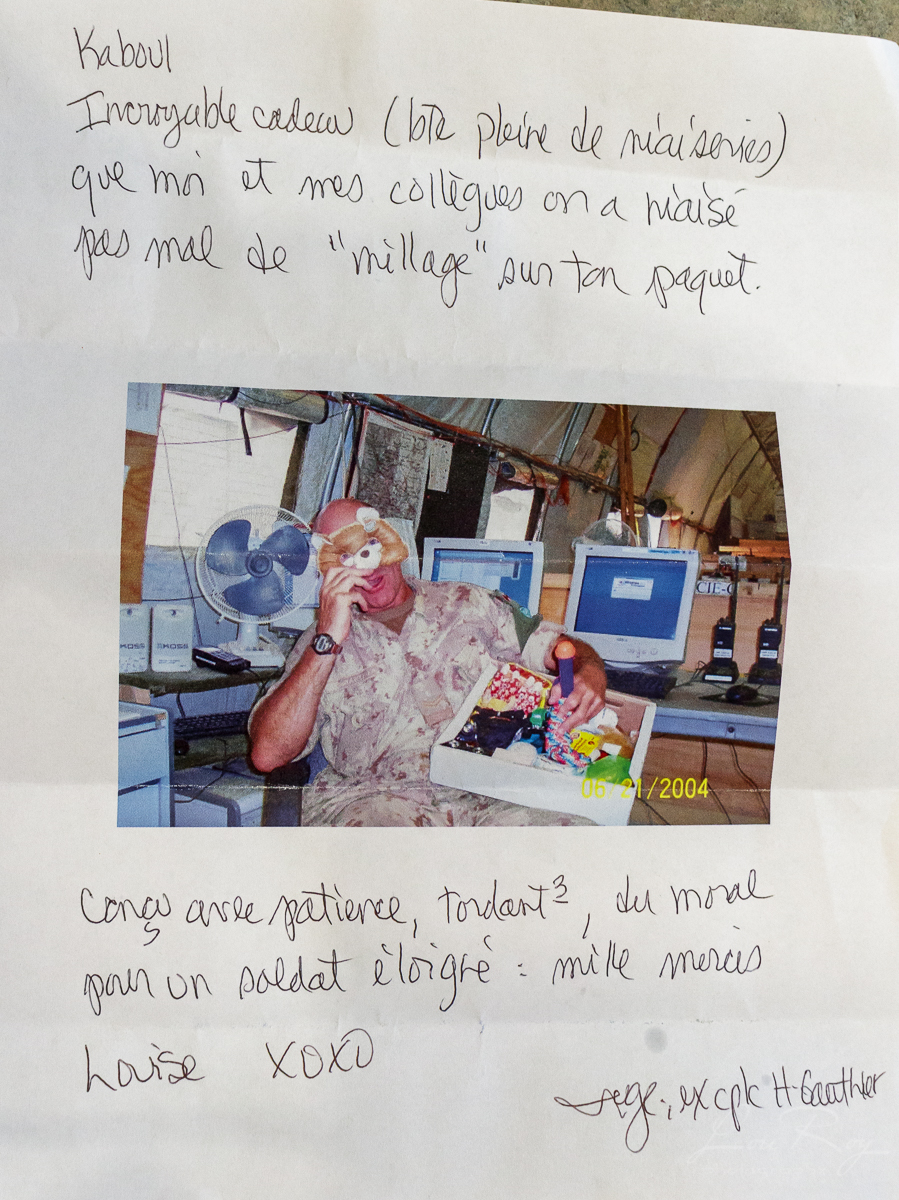 Kaboul
Incroyable cadeau (bte pleine de niaiseries)
que moi et mes collègues on a niaisé
pas mal de "millage" sur ton paquet.
KOSS
KOSS
CIE-
06/21/2004
Conçu avec patience, tordant³, du moral
pour un soldat éloigné : mille mercis
Louise XOXO
ex cplc H. Gauthier